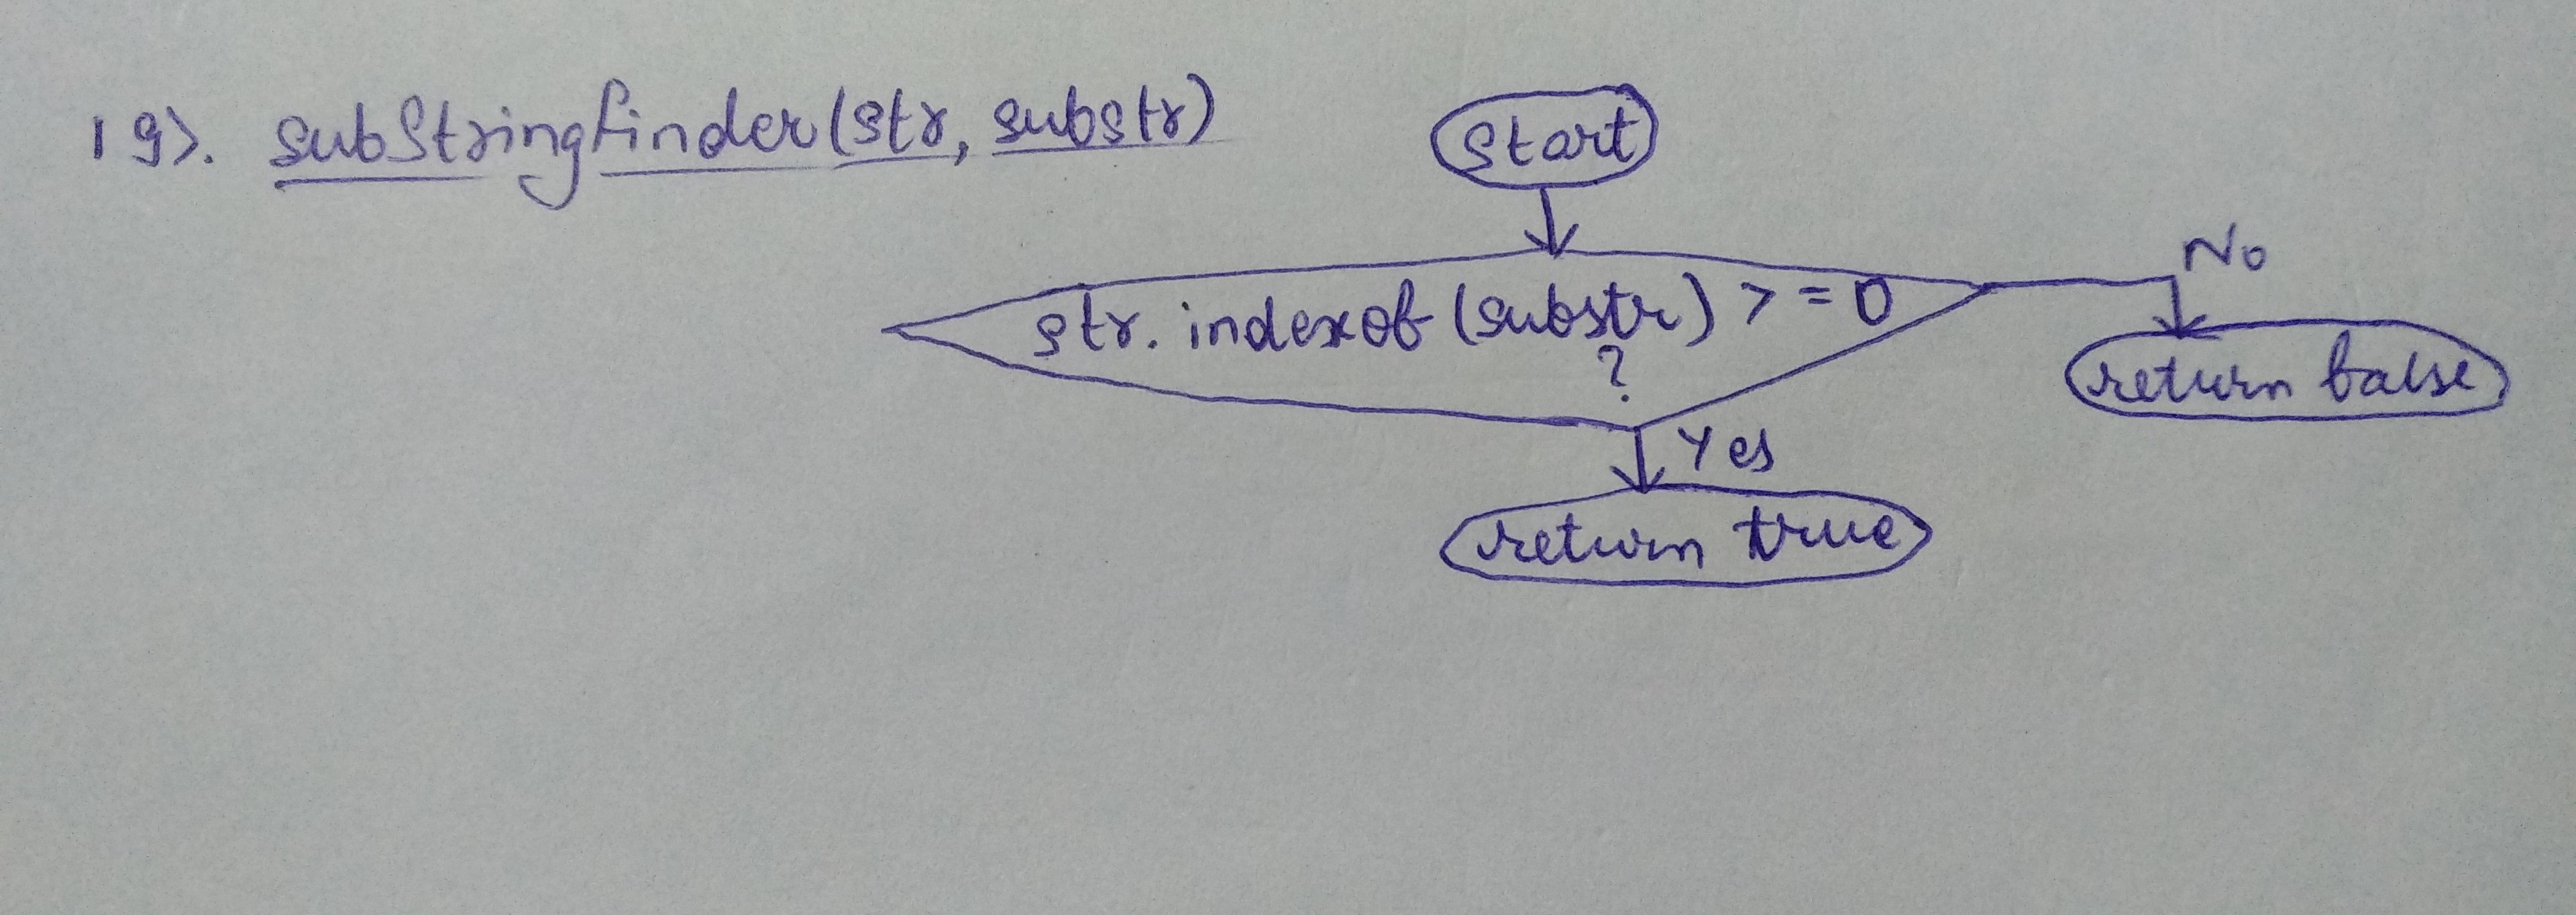 19). subStringfinder(str, substr)
start
str. indexof (substr) >= 0
?
No
return false
Yes
return true